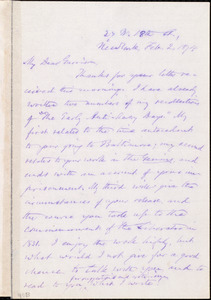 My Dear Garrison,
Thanks for your letter re-
ceived this morning. I have already
written two numbers of my recollections
of "The Early Anti-Slavery Days". My
first related to the and antecedent
to your going to Baltimore; my second
relates to your work in the and
ends with an account of your
My third will give the
circumstances of your release, and
the course you took up to the
commencement of the Liberator in
1831. I enjoy the work highly, but
what would I not give for a good
chance to talk with you and to
read to you what I write!